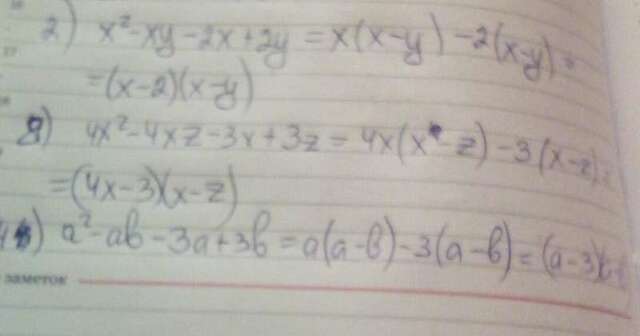 2) x²-xy-2x+2y = x(x-y) -2(x-y) =
=(x-2)(x-y)
4x²-4xz-3x+3z = 4x(x-z) -3(x-z) =
=(4x-3)(x-z)
a²-ab-3a+3b = a(a-b)-3(a-b) = (a-3)(
заметок